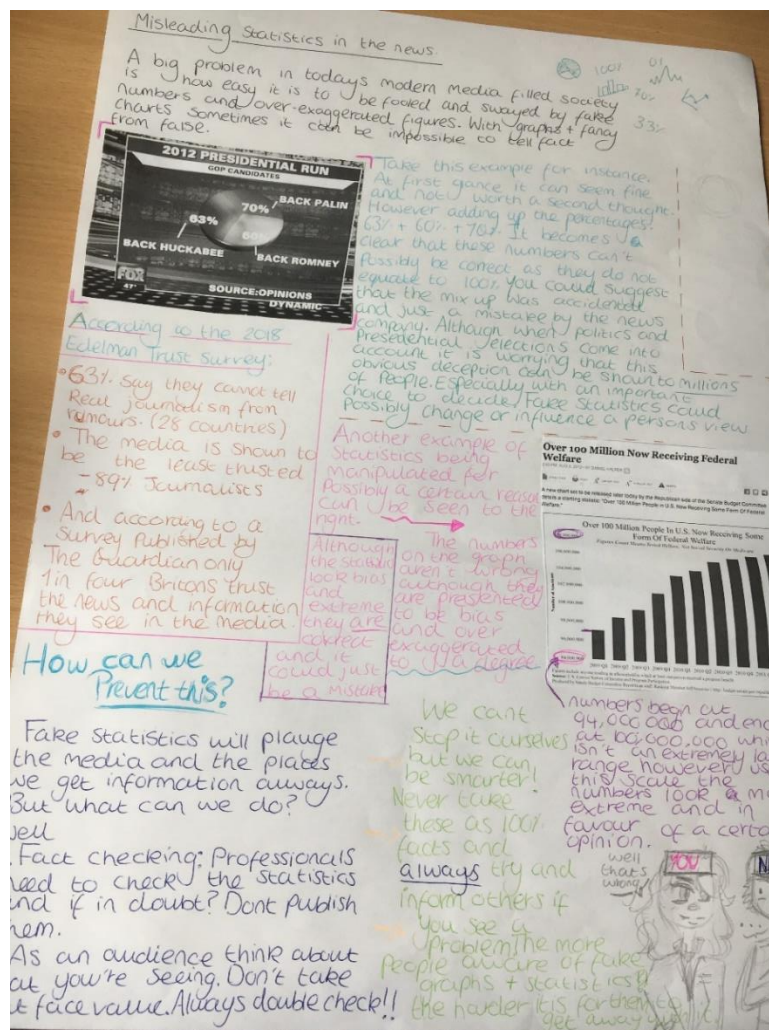 Misleading Statistics in the news.
A big problem in todays modern media filled society
is how easy it is to be fooled and swayed by fake
numbers and over-exaggerated figures. With graphs + fancy
charts sometimes it can be impossible to tell fact
from false.
100%
01
70%
33%
2012 PRESIDENTIAL RUN
GOP CANDIDATES
70%
BACK PALIN
63%
60%
BACK HUCKABEE
BACK ROMNEY
FOX
47°
SOURCE:OPINIONS
DYNAMIC
Take this example for instance.
At first gance it can seem fine
and not worth a second thought.
However adding up the percentages:
63% + 60% + 70% It becomes
clear that these numbers can't
Possibly be correct as they do not
equate to 100%. You could suggest
that the mix up was accidental
and just a mistake by the news
company. Although when politics and
Presedential elections come into
account it is worrying that this
obvious deception can be shown to millions
of people. Especially with an important
choice to decide, Fake Statistics could
Possibly change or influence a persons view
According to the 2018
Edelman Trust Survey:
• 63% say they cannot tell
Real journalism from
rumours. (28 countries)
• The media is shown to
be the least trusted
- 89% Journalists
• And according to a
Survey Published by
The Guardian only
1 in four Britons trust
the news and information
they see in the media.
Another example of
Statistics being
manipulated for
Possibly a certain reason
can be seen to the
right.
The numbers
on the graph
aren't wrong
although they
are presented
to be bias
and over
exaggerated
to a degree
Although
the statistic
look bias
and
extreme
they are
correct
and it
could just
be a mistake
Over 100 Million Now Receiving Federal
Welfare
Over 100 Million People In U.S. Now Receiving Some
Form Of Federal Welfare
numbers begin at
94,000,000 and end
at
isn't an extremely
range however
this scale the
numbers look a
extreme and in
favour of a
opinion.
How can we
Prevent this?
Fake statistics will plauge
the media and the places
we get information always.
But what can we do?
Well
Fact checking: Professionals
need to check the statistics
and if in doubt? Dont publish
them.
As an audience think about
what you're seeing. Don't take
at face value. Always double check!!
We cant
stop it ourselves
but we can
be smarter!
Never take
these as 100%
facts and
always try and
inform others if
you see a
problem, the more
People aware of fake
graphs + statistics
the harder it is for them to
get away with it.
well
that's
wrong
YOU